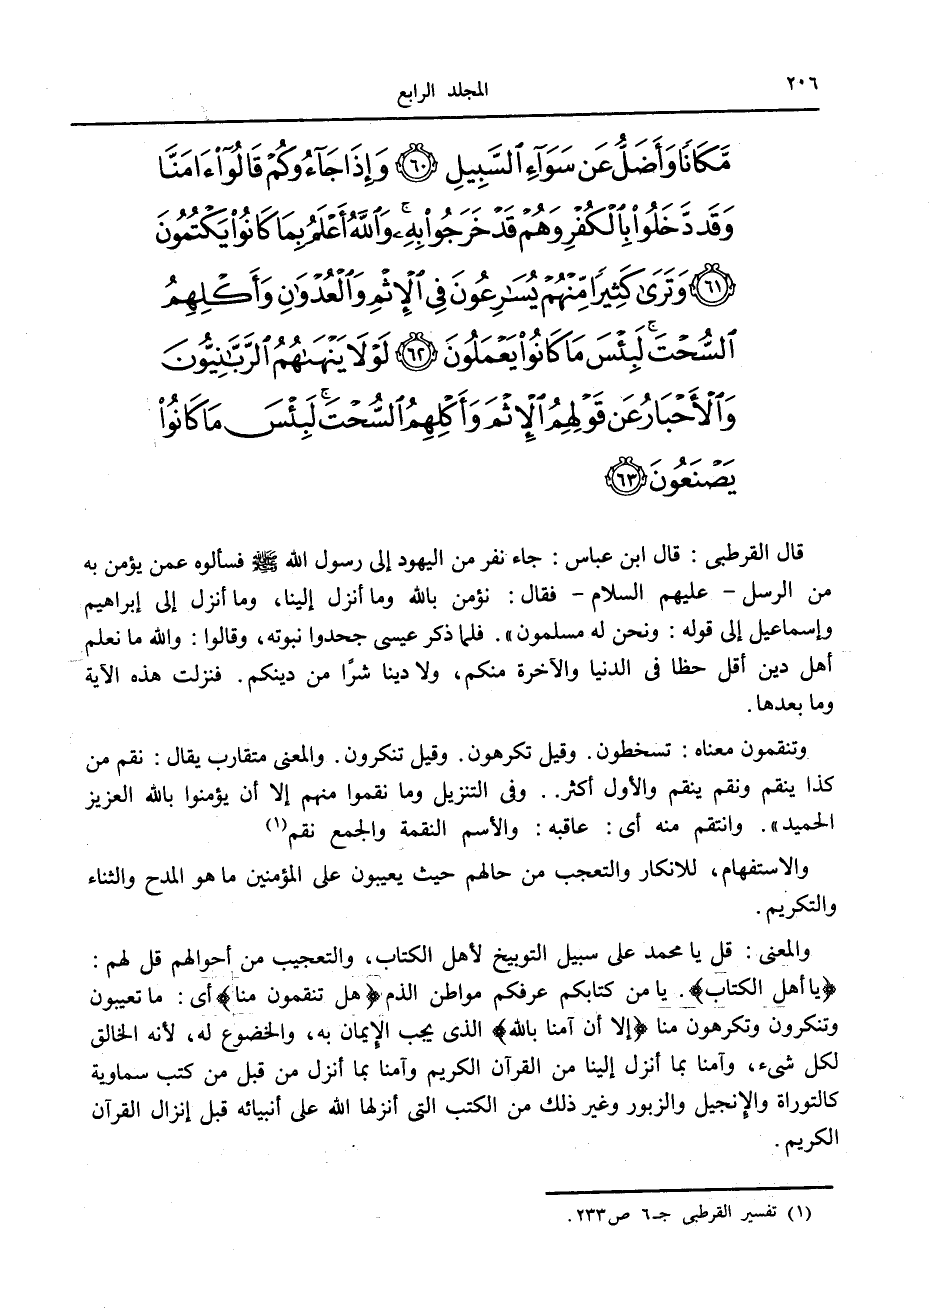 ٢٠٦
المجلد الرابع
مَّكَانًا وَأَضَلُّ عَن سَوَآءِ ٱلسَّبِيلِ ۝٦٠ وَإِذَا جَآءُوكُمْ قَالُوٓا۟ ءَامَنَّا
وَقَد دَّخَلُوا۟ بِٱلْكُفْرِ وَهُمْ قَدْ خَرَجُوا۟ بِهِۦ ۚ وَٱللَّهُ أَعْلَمُ بِمَا كَانُوا۟ يَكْتُمُونَ
۝٦١ وَتَرَىٰ كَثِيرًا مِّنْهُمْ يُسَـٰرِعُونَ فِى ٱلْإِثْمِ وَٱلْعُدْوَٰنِ وَأَكْلِهِمُ
ٱلسُّحْتَ ۚ لَبِئْسَ مَا كَانُوا۟ يَعْمَلُونَ ۝٦٢ لَوْلَا يَنْهَىٰهُمُ ٱلرَّبَّـٰنِيُّونَ
وَٱلْأَحْبَارُ عَن قَوْلِهِمُ ٱلْإِثْمَ وَأَكْلِهِمُ ٱلسُّحْتَ ۚ لَبِئْسَ مَا كَانُوا۟
يَصْنَعُونَ ۝٦٣
قال القرطبى : قال ابن عباس : جاء نفر من اليهود إلى رسول الله ﷺ فسألوه عمن يؤمن به
من الرسل – عليهم السلام – فقال : نؤمن بالله وما أنزل إلينا، وما أنزل إلى إبراهيم
وإسماعيل إلى قوله : ونحن له مسلمون». فلما ذكر عيسى جحدوا نبوته، وقالوا : والله ما نعلم
أهل دين أقل حظا فى الدنيا والآخرة منكم، ولا دينا شرًا من دينكم. فنزلت هذه الآية
وما بعدها.
وتنقمون معناه : تسخطون. وقيل تكرهون. وقيل تنكرون. والمعنى متقارب يقال : نقم من
كذا ينقم ونقم ينقم والأول أكثر.. وفى التنزيل وما نقموا منهم إلا أن يؤمنوا بالله العزيز
الحميد». وانتقم منه أى : عاقبه : والأسم النقمة والجمع نقم(١)
والاستفهام، للانكار والتعجب من حالهم حيث يعيبون على المؤمنين ما هو المدح والثناء
والتكريم.
والمعنى : قل يا محمد على سبيل التوبيخ لأهل الكتاب، والتعجيب من أحوالهم قل لهم :
﴿يا أهل الكتاب﴾. يا من كتابكم عرفكم مواطن الذم ﴿هل تنقمون منا﴾ أى : ما تعيبون
وتنكرون وتكرهون منا ﴿إلا أن آمنا بالله﴾ الذى يجب الإيمان به، والخضوع له، لأنه الخالق
لكل شىء، وآمنا بما أنزل إلينا من القرآن الكريم وآمنا بما أنزل من قبل من كتب سماوية
كالتوراة والإنجيل والزبور وغير ذلك من الكتب التى أنزلها الله على أنبيائه قبل إنزال القرآن
الكريم.
(١) تفسير القرطبى جـ٦ ص٢٣٣.